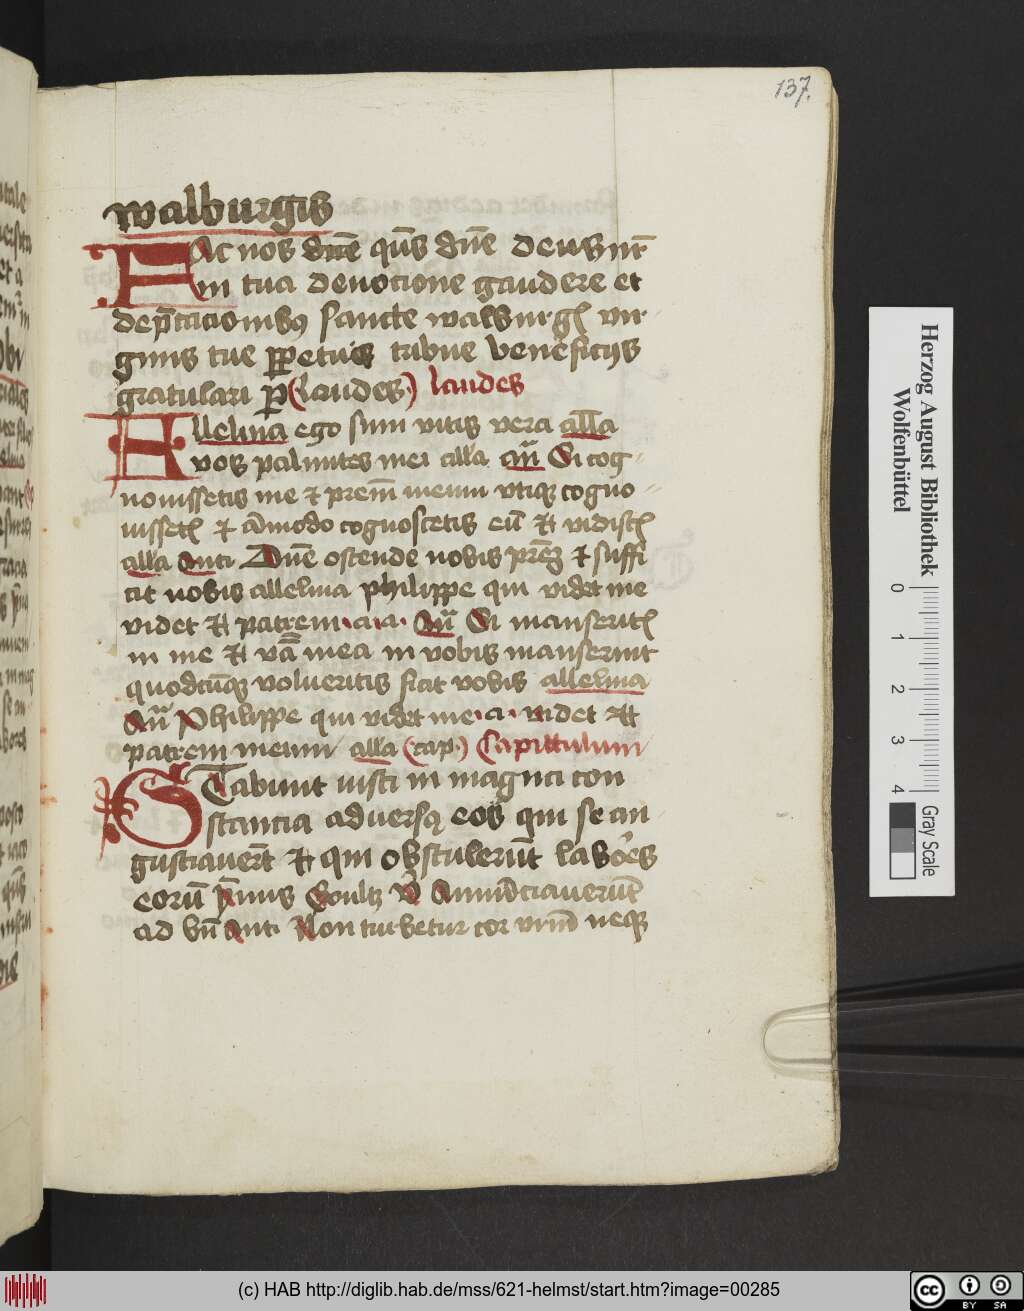 137.
walburgis
FAc nos dnē qūs dnē deus nr̄
in tua deuocione gaudere et
dep̄cacionibꝯ sancte walburgꝭ vir
ginis tue ꝑpetuis tabne beneficijs
gratulari ꝑ (laudes) laudes
Allelu̅ia ego sum vitis vera all̄a
vos palmites mei alla an̄ Si cog-
nouissetis me ⁊ prem̄ meum vtiqꝫ cogno
uissetꝭ ⁊ am̄odo cognoscetis eū ⁊ vidistꝭ
alla anti Dn̄e ostende nobis prēꝫ ⁊ suffi
cit nobis alleluia philippe qui videt me
videt ⁊ patrem · a · a · an̄ Si manseritꝭ
in me ⁊ v̄ba mea in vobis manserint
quodcūqꝫ volueritis fiat vobis alleluia
An̄ Philippe qui videt me · a · videt ⁊
patrem meum alla (cap.) Capittulum
STabunt iusti in magna con
stancia aduersꝯ eos qui se an
gustiauerūt ⁊ qui obstulerūt labores
eorū p̄mus Exultꝫ v̄ Annūctiauerūt
ad bn̄ anti Non turbetur cor vrm̄ neqꝫ
Herzog August Bibliothek
Wolfenbüttel
0 1 2 3 4
Gray Scale
(c) HAB http://diglib.hab.de/mss/621-helmst/start.htm?image=00285
cc BY SA